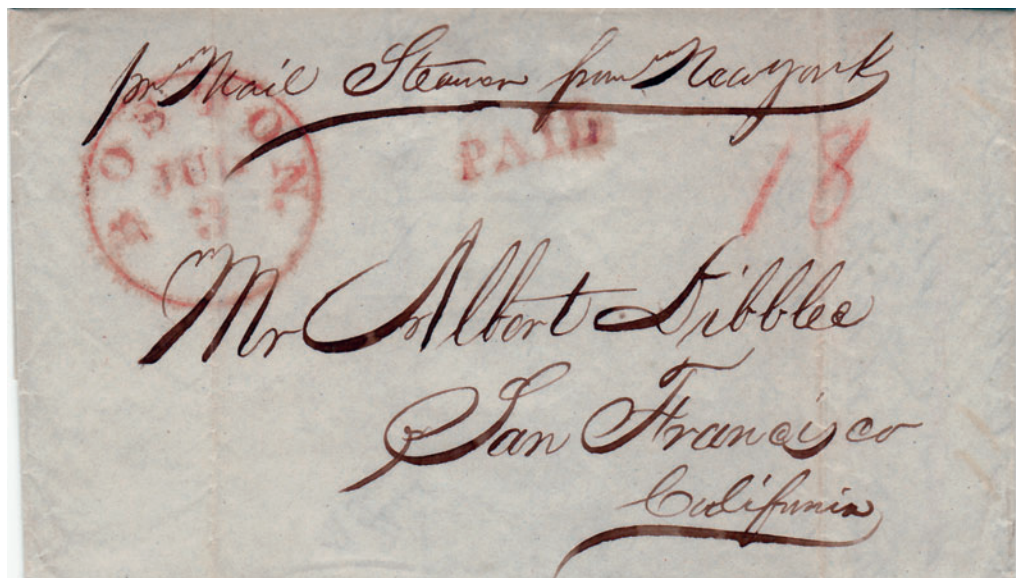 pr Mail Steamer from New York
BOSTON
JUL
3
PAID
18
Mr Albert Dibblee
San Francisco
California